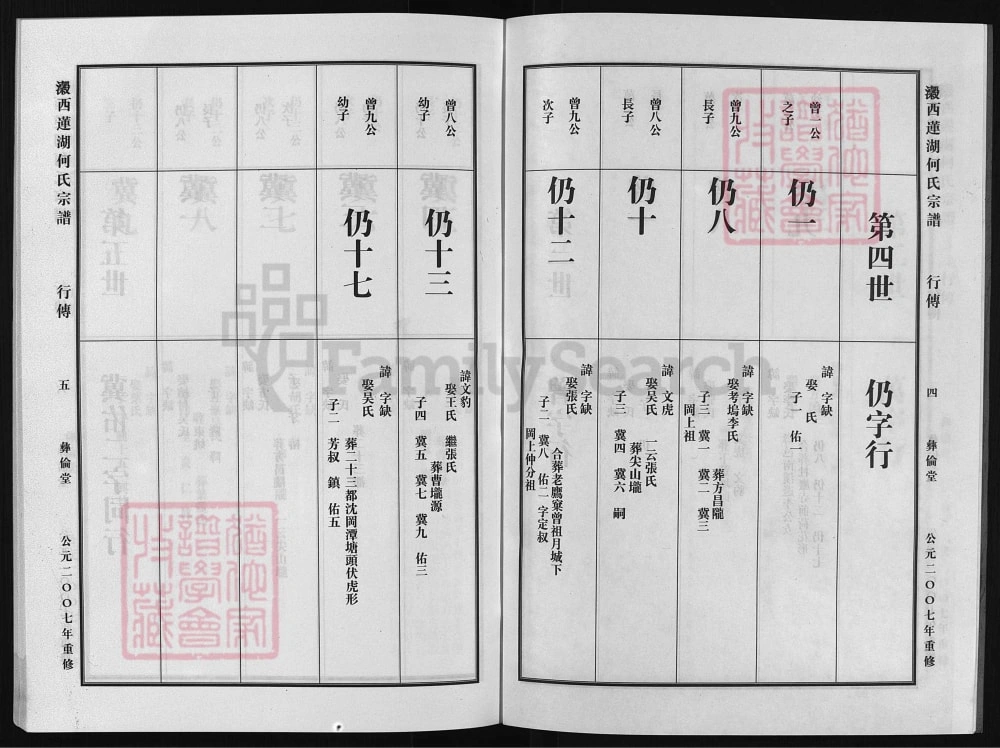 瀫西蓮湖何氏宗譜
行傳
四
彝倫堂
公元二〇〇七年重修
第四世
仍字行
曾一公
之子
仍一
諱 字缺
娶 氏
子一 佑一
曾九公
長子
仍八
諱 字缺
娶考塢李氏
葬方昌隴
子三 冀一 冀二 冀三
岡上祖
曾八公
長子
仍十
諱 文虎
娶吴氏 一云張氏
葬尖山壠
子三 冀四 冀六 嗣
曾九公
次子
仍十二
諱 字缺
娶張氏
合葬老鷹窠曾祖月城下
子二 冀八 佑二字定叔
岡上仲分祖
曾八公
幼子
仍十三
諱文豹
娶王氏 繼張氏
葬曹壠源
子四 冀五 冀七 冀九 佑三
曾九公
幼子
仍十七
諱 字缺
娶吴氏
葬二十三都沈岡潭塘頭伏虎形
子二 芳叔 鎮 佑五
瀫西蓮湖何氏宗譜
行傳
五
彝倫堂
公元二〇〇七年重修
FamilySearch